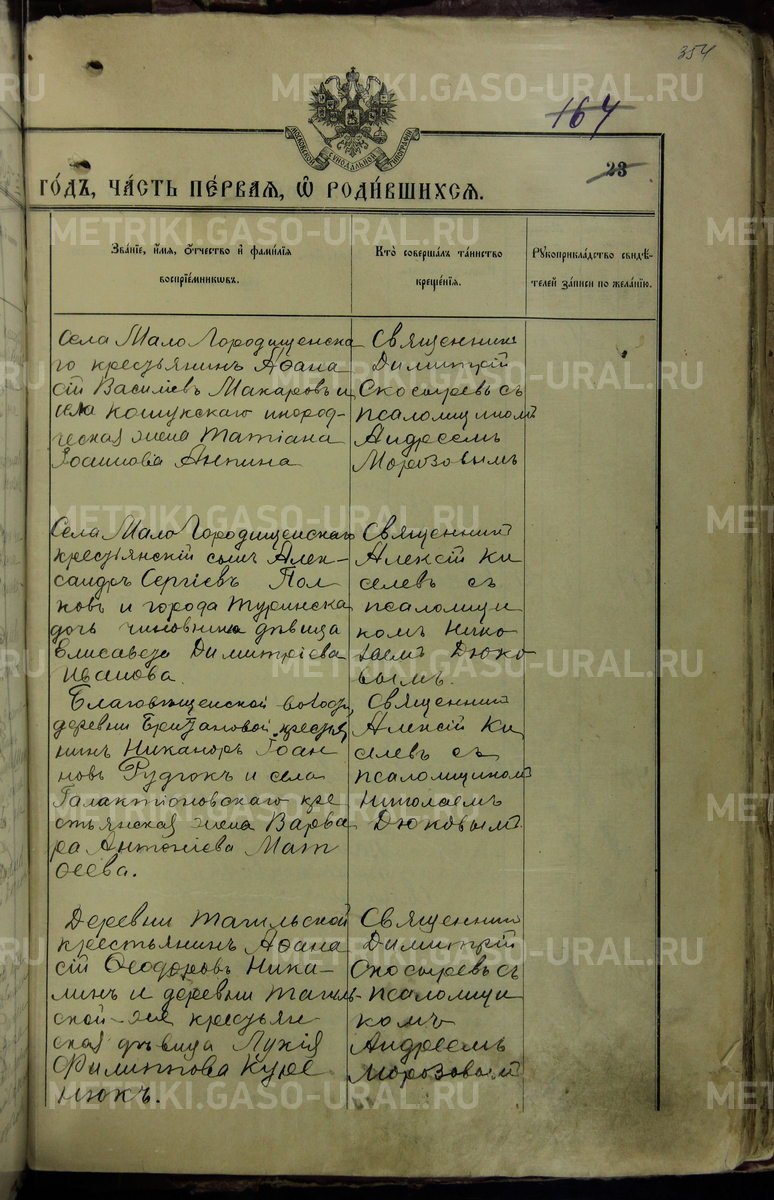 354
164
23
МОСКОВСКОЙ СѴНОДАЛЬНОЙ ТИПОГРАФІИ
ГО́ДЪ, ЧА́СТЬ ПЕ́РВАЯ, Ѿ РОДИ́ВШИХСѦ.
Зва́нїе, и́мѧ, о́тчество и҆ фами́лїѧ
воспрїе́мникѡвъ.
Кто̀ соверша́лъ та́инство
креще́нїѧ.
Рꙋкоприкла́дство свидѣ́-
телей за́писи по жела́нїю.
Села Мало Городищенска
го крестьянинъ Аѳана
сій Василіевъ Макаровъ и
села Кошукскаго инород-
ческая жена Татіана
Іоаннова Анпина
Священникъ
Димитрій
Скосыревъ съ
псаломщикомъ
Андреемъ
Морозовымъ
Села Мало Городищенскаго
крестьянскій сынъ Алек-
сандръ Сергіевъ Пол
ковъ и города Туринска
дочь чиновника дѣвица
Елисавета Димитріева
Иванова.
Священникъ
Алексій Ки
селевъ съ
псаломщи
комъ Нико
лаемъ Дюко
вымъ.
Благовѣщенской волости
деревни крестья
нинъ Никаноръ Іоан
новъ Рудчокъ и села
Галактіоновскаго кре
стьянская жена Варва
ра Антоніева Мат
ѳеева.
Священникъ
Алексій Ки
селевъ съ
псаломщикомъ
Николаемъ
Дюковымъ.
Деревни Тагильской
крестьянинъ Аѳана
сій Ѳеодоровъ Ника-
линъ и деревни Тагиль-
ской-же крестьян
ская дѣвица Лукія
Филиппова Куре
нюкъ.
Священникъ
Димитрій
Скосыревъ съ
псаломщи
комъ
Андреемъ
Морозовымъ
METRIKI.GASO-URAL.RU
METRIKI.GASO-URAL.RU
METRIKI.GASO-URAL.RU
METRIKI.GASO-URAL.RU
METRIKI.GASO-URAL.RU
METRIKI.GASO-URAL.RU
METRIKI.GASO-URAL.RU
METRIKI.GASO-URAL.RU